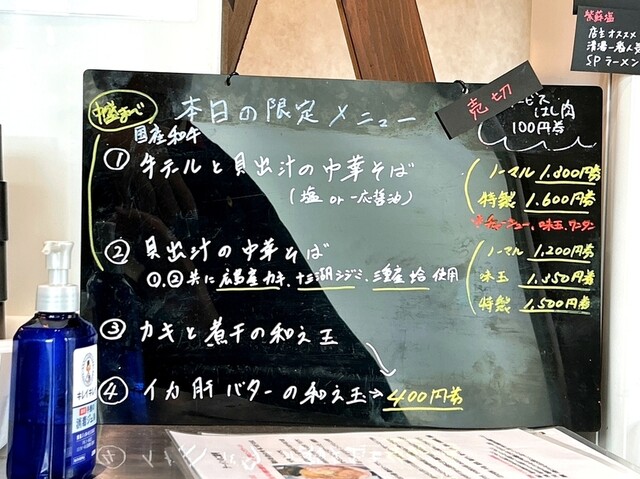 本日の限定メニュー
売切
はし肉
100円券
国産和牛
① 牛テールと貝出汁の中華そば
(塩 or 一応醤油)
ノーマル 1.300円券
特製 1.600円券
味玉、ワンタン
② 貝出汁の中華そば
①,②共に広島産カキ、十三湖シジミ、三重産蛤 使用
ノーマル 1,200円券
味玉 1,350円券
特製 1,500円券
③ カキと煮干の和え玉
④ イカ肝バターの和え玉→400円券
紫蘇塩
店主オススメ
SPラーメン
キレイキレイ